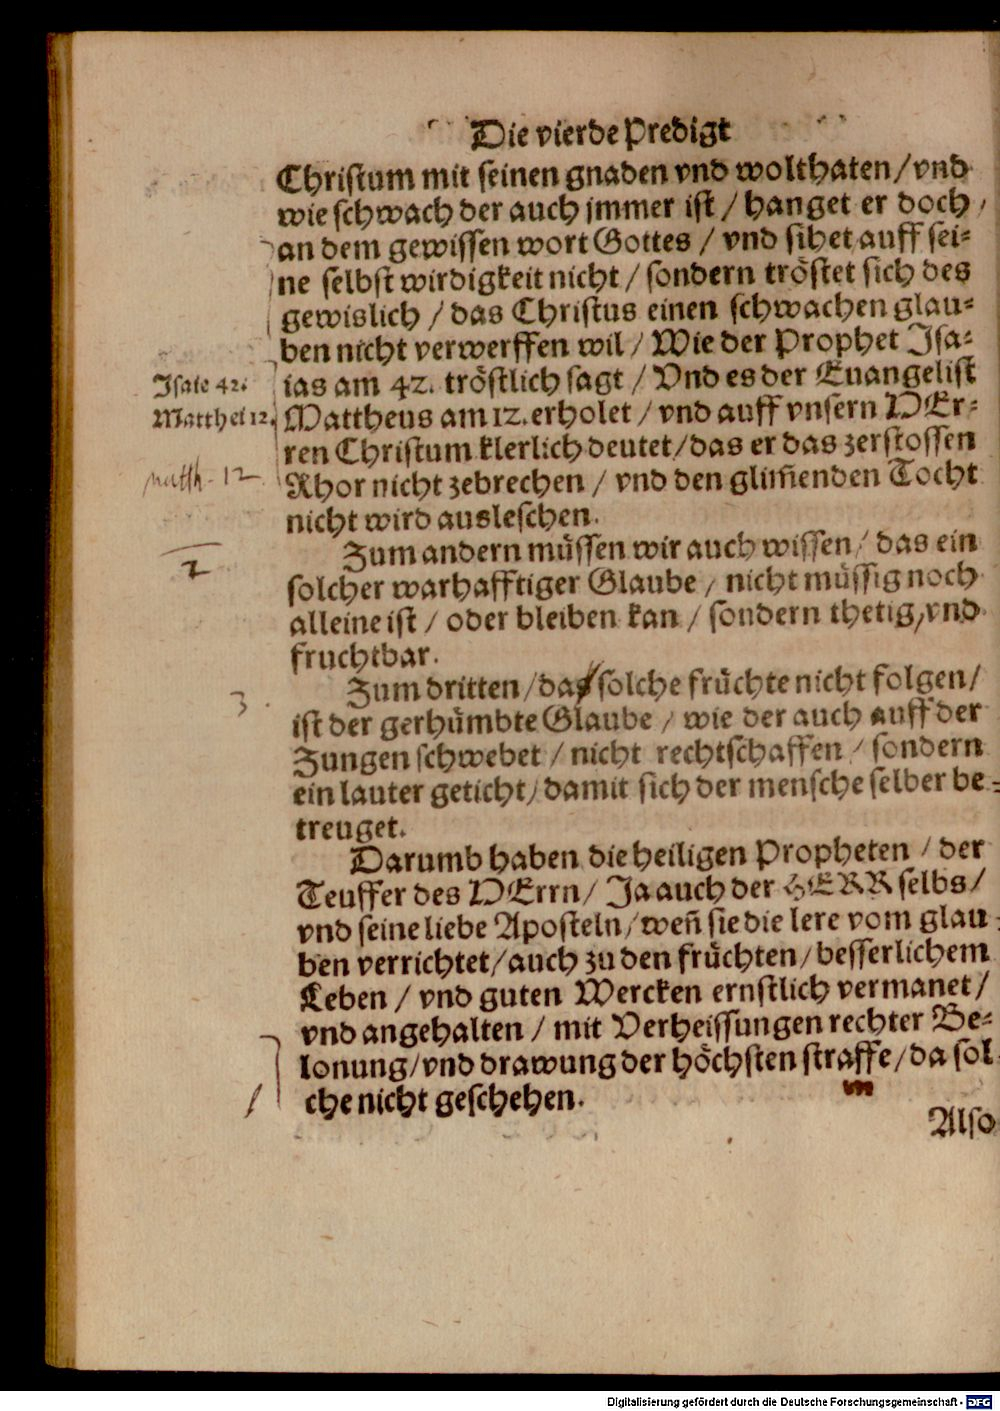 Die vierde Predigt
Christum mit seinen gnaden vnd wolthaten / vnd
wie schwach der auch jmmer ist / hanget er doch /
an dem gewissen wort Gottes / vnd sihet auff sei=
ne selbst wirdigkeit nicht / sondern tröstet sich des
gewislich / das Christus einen schwachen glau=
ben nicht verwerffen wil / Wie der Prophet Isa=
Isaie 42. ias am 42. tröstlich sagt / Vnd es der Euangelist
Matthei 12. Mattheus am 12. erholet / vnd auff vnsern HEr=
ren Christum klerlich deutet / das er das zerstossen
matth. 12 Rhor nicht zebrechen / vnd den glim̃enden Tocht
nicht wird ausleschen.
Zum andern müssen wir auch wissen / das ein
2 solcher warhafftiger Glaube / nicht müssig noch
alleine ist / oder bleiben kan / sondern thetig / vnd
fruchtbar.
3. Zum dritten / da solche früchte nicht folgen /
ist der gerhümbte Glaube / wie der auch auff der
Zungen schwebet / nicht rechtschaffen / sondern
ein lauter geticht / damit sich der mensche selber be=
treuget.
Darumb haben die heiligen Propheten / der
Teuffer des HErrn / Ja auch der HERR selbs /
vnd seine liebe Aposteln / weñ sie die lere vom glau=
ben verrichtet / auch zu den früchten / besserlichem
Leben / vnd guten Wercken ernstlich vermanet /
vnd angehalten / mit Verheissungen rechter Be=
lonung / vnd drawung der höchsten straffe / da sol=
che nicht geschehen.
Also
Digitalisierung gefördert durch die Deutsche Forschungsgemeinschaft - DFG